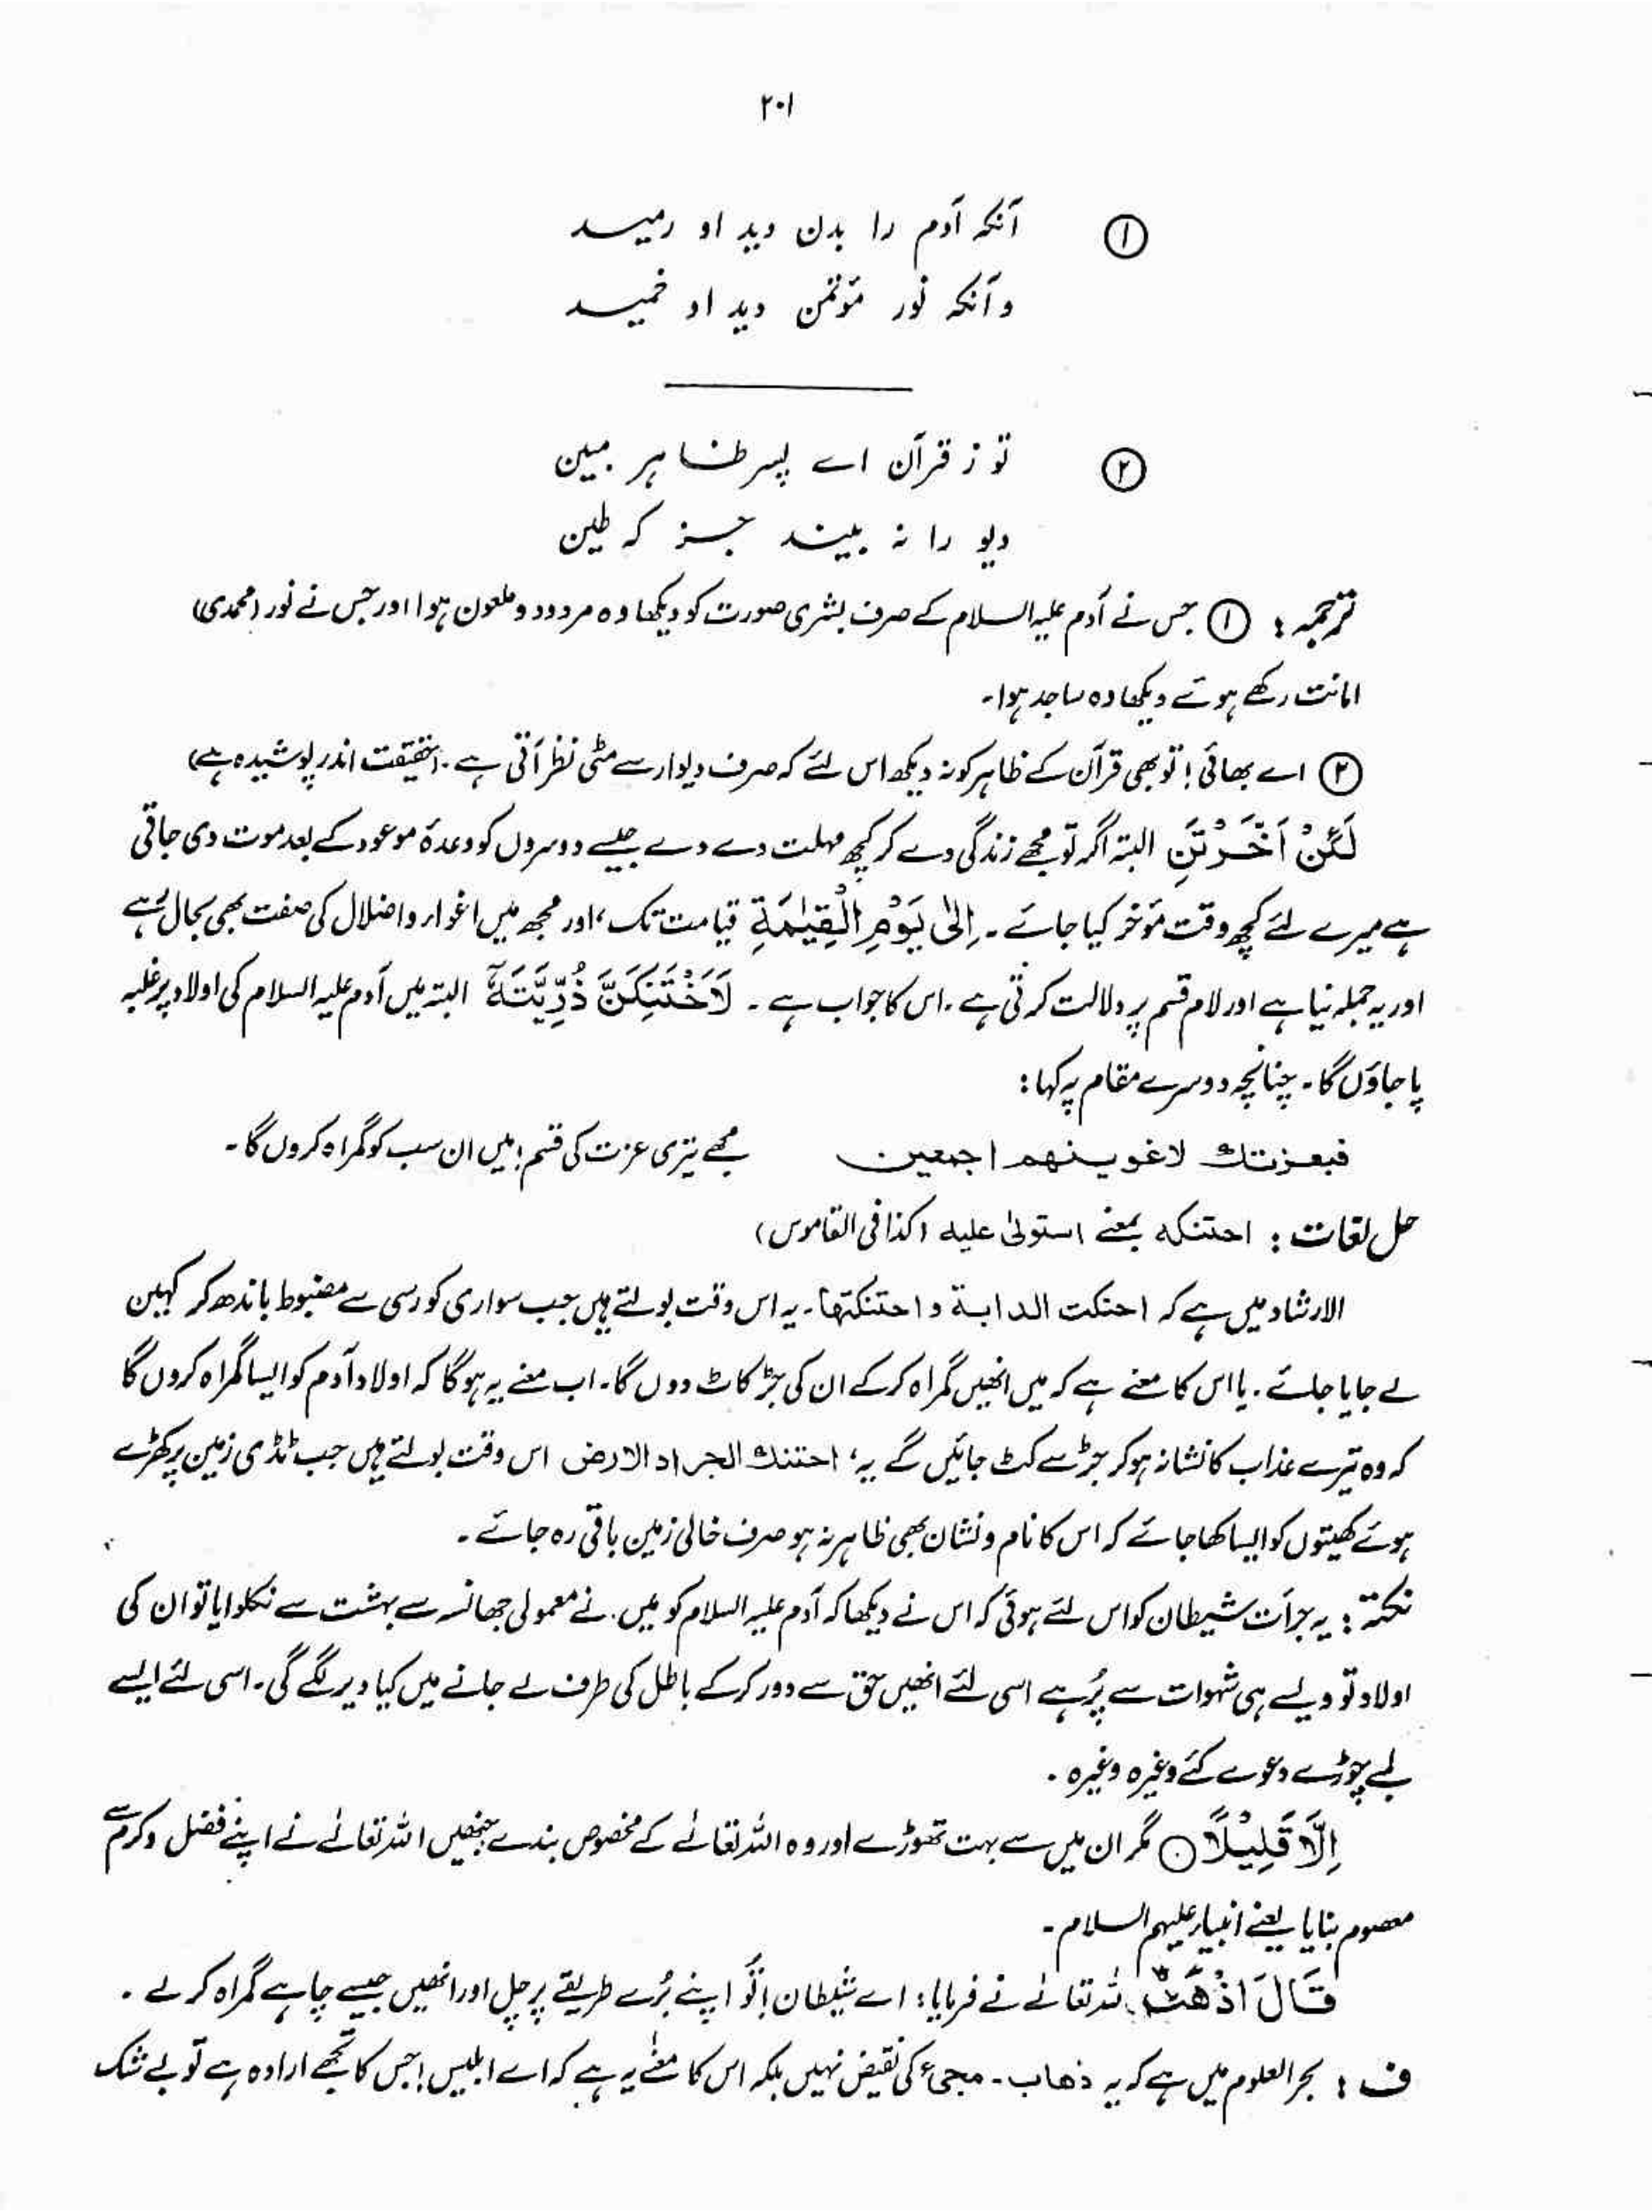 ۲۰۱
① آنکہ آدم را بدن دید او رمید
و آنکہ نور مؤتمن دید او خمید
② تو ز قرآن اے پسر ظاہر مبین
دیو را نہ بیند جز کہ طین
ترجمہ : ① جس نے آدم علیہ السلام کے صرف بشری صورت کو دیکھا وہ مردود و ملعون ہوا اور جس نے نور (محمدی)
امانت رکھے ہوئے دیکھا وہ ساجد ہوا۔
② اے بھائی ! تو بھی قرآن کے ظاہر کو نہ دیکھ اس لئے کہ صرف دیوار سے مٹی نظر آتی ہے۔ (حقیقت اندر پوشیدہ ہے)
لَئِنْ اَخَّرْتَنِ البتہ اگر تو مجھے زندگی دے کر کچھ مہلت دے دے جیسے دوسروں کو وعدۂ موعود کے بعد موت دی جاتی
ہے میرے لئے کچھ وقت مؤخر کیا جائے۔ اِلٰی یَوْمِ الْقِیٰمَۃِ قیامت تک، اور مجھ میں اغواء و اضلال کی صفت بھی بحال رہے
اور یہ جملہ نیا ہے اور لام قسم پر دلالت کرتی ہے۔ اس کا جواب ہے ۔ لَاَحْتَنِکَنَّ ذُرِّیَّتَہٗٓ البتہ میں آدم علیہ السلام کی اولاد پر غلبہ
پا جاؤں گا۔ چنانچہ دوسرے مقام پہ کہا :
فبعزتک لاغوینھم اجمعین مجھے تیری عزت کی قسم ! میں ان سب کو گمراہ کروں گا۔
حل لغات : احتنکہ بمعنے استولیٰ علیہ (کذا فی القاموس)
الارشاد میں ہے کہ احنکت الدابۃ و احتنکتھا۔ یہ اس وقت بولتے ہیں جب سواری کو رسی سے مضبوط باندھ کر کہیں
لے جایا جائے۔ یا اس کا معنے ہے کہ میں انھیں گمراہ کرکے ان کی جڑ کاٹ دوں گا۔ اب معنے یہ ہوگا کہ اولاد آدم کو ایسا گمراہ کروں گا
کہ وہ تیرے عذاب کا نشانہ ہو کر جڑ سے کٹ جائیں گے یہ، احتنک الجراد الارض اس وقت بولتے ہیں جب ٹڈی زمین پر کھڑے
ہوئے کھیتوں کو ایسا کھا جائے کہ اس کا نام و نشان بھی ظاہر نہ ہو صرف خالی زمین باقی رہ جائے۔
نکتہ : یہ جرأت شیطان کو اس لئے ہوئی کہ اس نے دیکھا کہ آدم علیہ السلام کو میں نے معمولی جھانسہ سے بہشت سے نکلوایا تو ان کی
اولاد تو ویسے ہی شہوات سے پُر ہے اسی لئے انھیں حق سے دور کرکے باطل کی طرف لے جانے میں کیا دیر لگے گی۔ اسی لئے ایسے
لمبے چوڑے دعوے کئے وغیرہ وغیرہ۔
اِلَّا قَلِیْلًا ○ مگر ان میں سے بہت تھوڑے اور وہ اللہ تعالےٰ کے مخصوص بندے جنھیں اللہ تعالےٰ نے اپنے فضل و کرم سے
معصوم بنایا یعنے انبیاء علیہم السلام۔
قَالَ اذْھَبْ اللہ تعالےٰ نے فرمایا : اے شیطان ! تُو اپنے بُرے طریقے پر چل اور انھیں جیسے چاہے گمراہ کر لے۔
ف : بحر العلوم میں ہے کہ یہ ذھاب۔ مجیء کی نقیض نہیں بلکہ اس کا معنےٰ یہ ہے کہ اے ابلیس ! جس کا تجھے ارادہ ہے تو بے شک